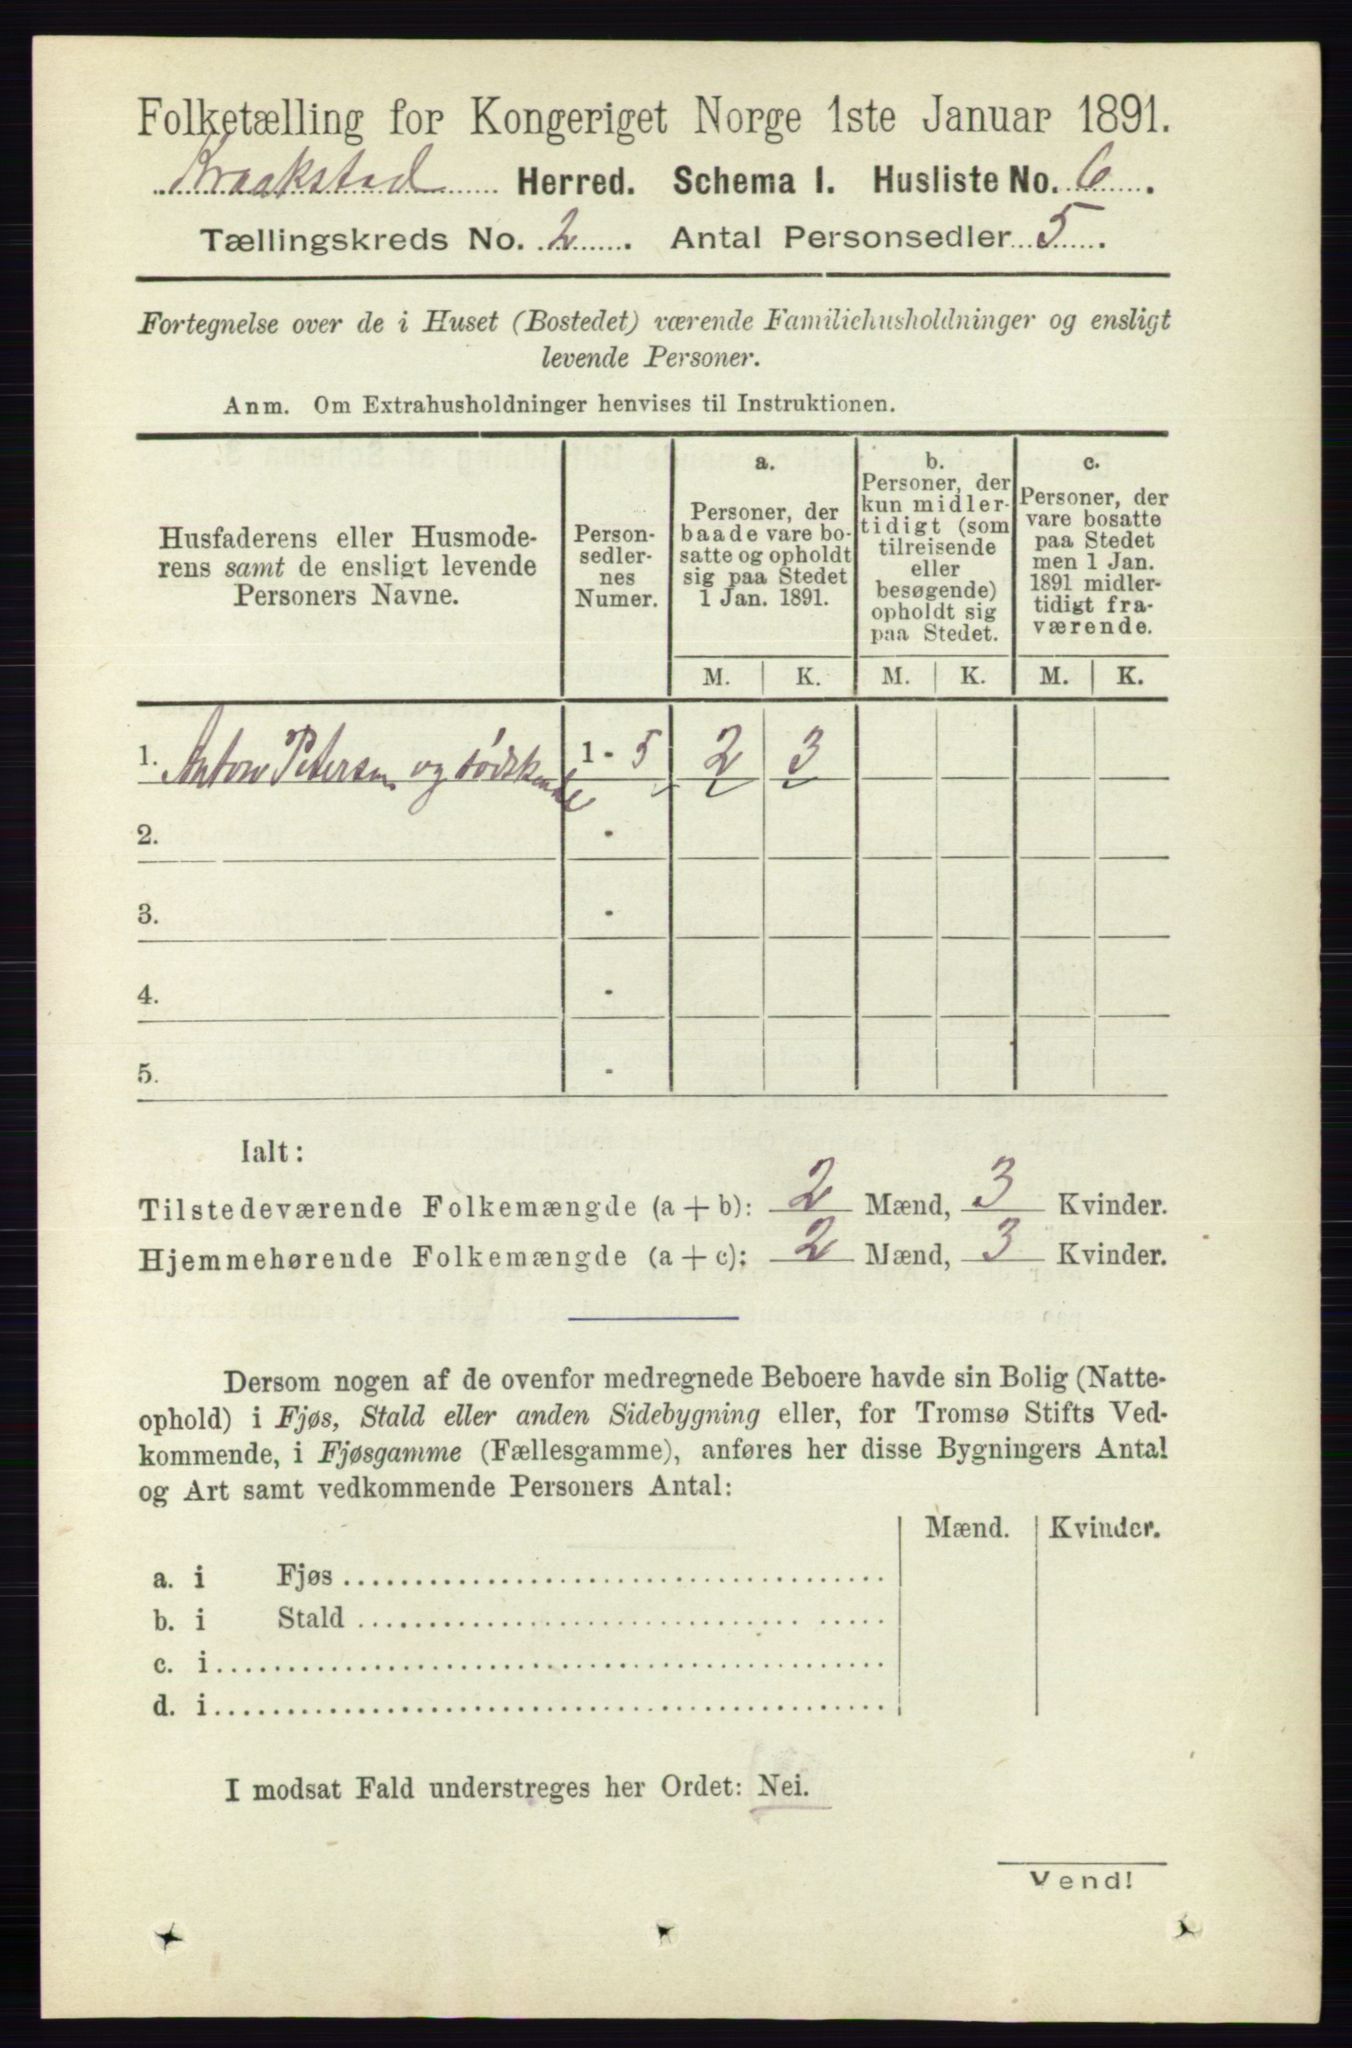 Folketælling for Kongeriget Norge 1ste Januar 1891.
Kraakstad Herred. Schema I. Husliste No. 6.
Tællingskreds No. 2. Antal Personsedler 5.
Fortegnelse over de i Huset (Bostedet) værende Familiehusholdninger og ensligt
levende Personer.
Anm. Om Extrahusholdninger henvises til Instruktionen.
Husfaderens eller Husmode-
rens samt de ensligt levende
Personers Navne.
Person-
sedler-
nes
Numer.
a.
Personer, der
baade vare bo-
satte og opholdt
sig paa Stedet
1 Jan. 1891.
b.
Personer, der
kun midler-
tidigt (som
tilreisende
eller
besøgende)
opholdt sig
paa Stedet.
c.
Personer, der
vare bosatte
paa Stedet
men 1 Jan.
1891 midler-
tidigt fra-
værende.
M. K. M. K. M. K.
1. Anton Petersen og sødskende 1 - 5 2 3
2. -
3. -
4. -
5. -
Ialt:
Tilstedeværende Folkemængde (a + b): 2 Mænd, 3 Kvinder.
Hjemmehørende Folkemængde (a + c): 2 Mænd, 3 Kvinder.
Dersom nogen af de ovenfor medregnede Beboere havde sin Bolig (Natte-
ophold) i Fjøs, Stald eller anden Sidebygning eller, for Tromsø Stifts Ved-
kommende, i Fjøsgamme (Fællesgamme), anføres her disse Bygningers Antal
og Art samt vedkommende Personers Antal:
Mænd. Kvinder.
a. i Fjøs
b. i Stald
c. i
d. i
I modsat Fald understreges her Ordet: Nei.
Vend!